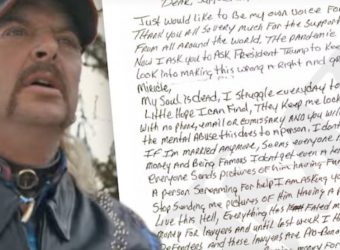 Just would like to be my own voice for
Thank you all so very much for the support
From all around the world, The Pandemic
Now I ask you to ask President Trump to keep
Look into making this wrong a right and gr
Miracle,
My Soul is dead, I struggle everyday to
Little Hope I can find, They keep me lock
With no phone, email or commissary and you will
the mental abuse this does to a person. I don't
if I'm married anymore, seems everyone
money and Being Famous I don't get even a
Everyone sends pictures of him having Fun
A person screaming for help I am asking y
Stop sending me pictures of him Having a
Live this Hell, Everything has
money for lawyers and until last week I h
Defenders and these lawyers are Pro-Bono
money